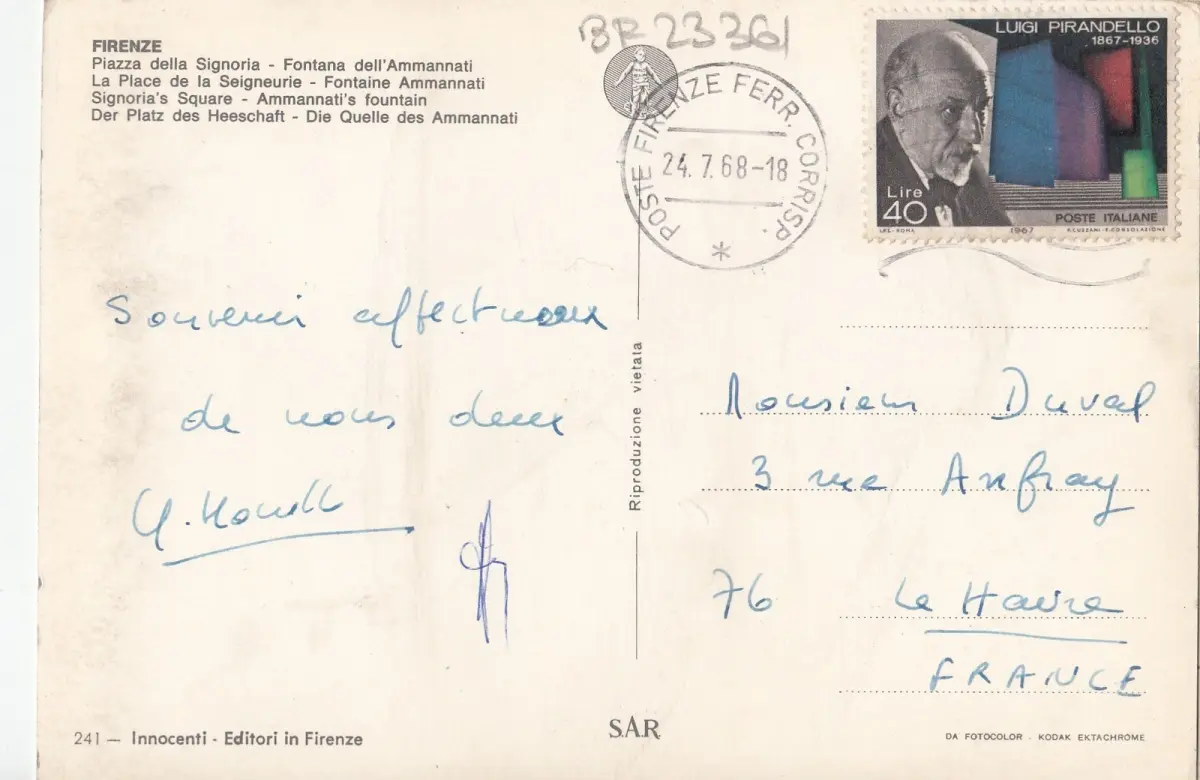 BR 23361
FIRENZE
Piazza della Signoria - Fontana dell'Ammannati
La Place de la Seigneurie - Fontaine Ammannati
Signoria's Square - Ammannati's fountain
Der Platz des Heeschaft - Die Quelle des Ammannati
POSTE FIRENZE FERR. CORRISP.
24.7.68-18
*
LUIGI PIRANDELLO
1867-1936
Lire
40
POSTE ITALIANE
I.P.S.-ROMA 1967
Souvenir affectueux
de nous deux
Riproduzione vietata
Monsieur Duval
3 rue Anfray
76 Le Havre
FRANCE
241 — Innocenti - Editori in Firenze
S.A.R.
DA FOTOCOLOR - KODAK EKTACHROME